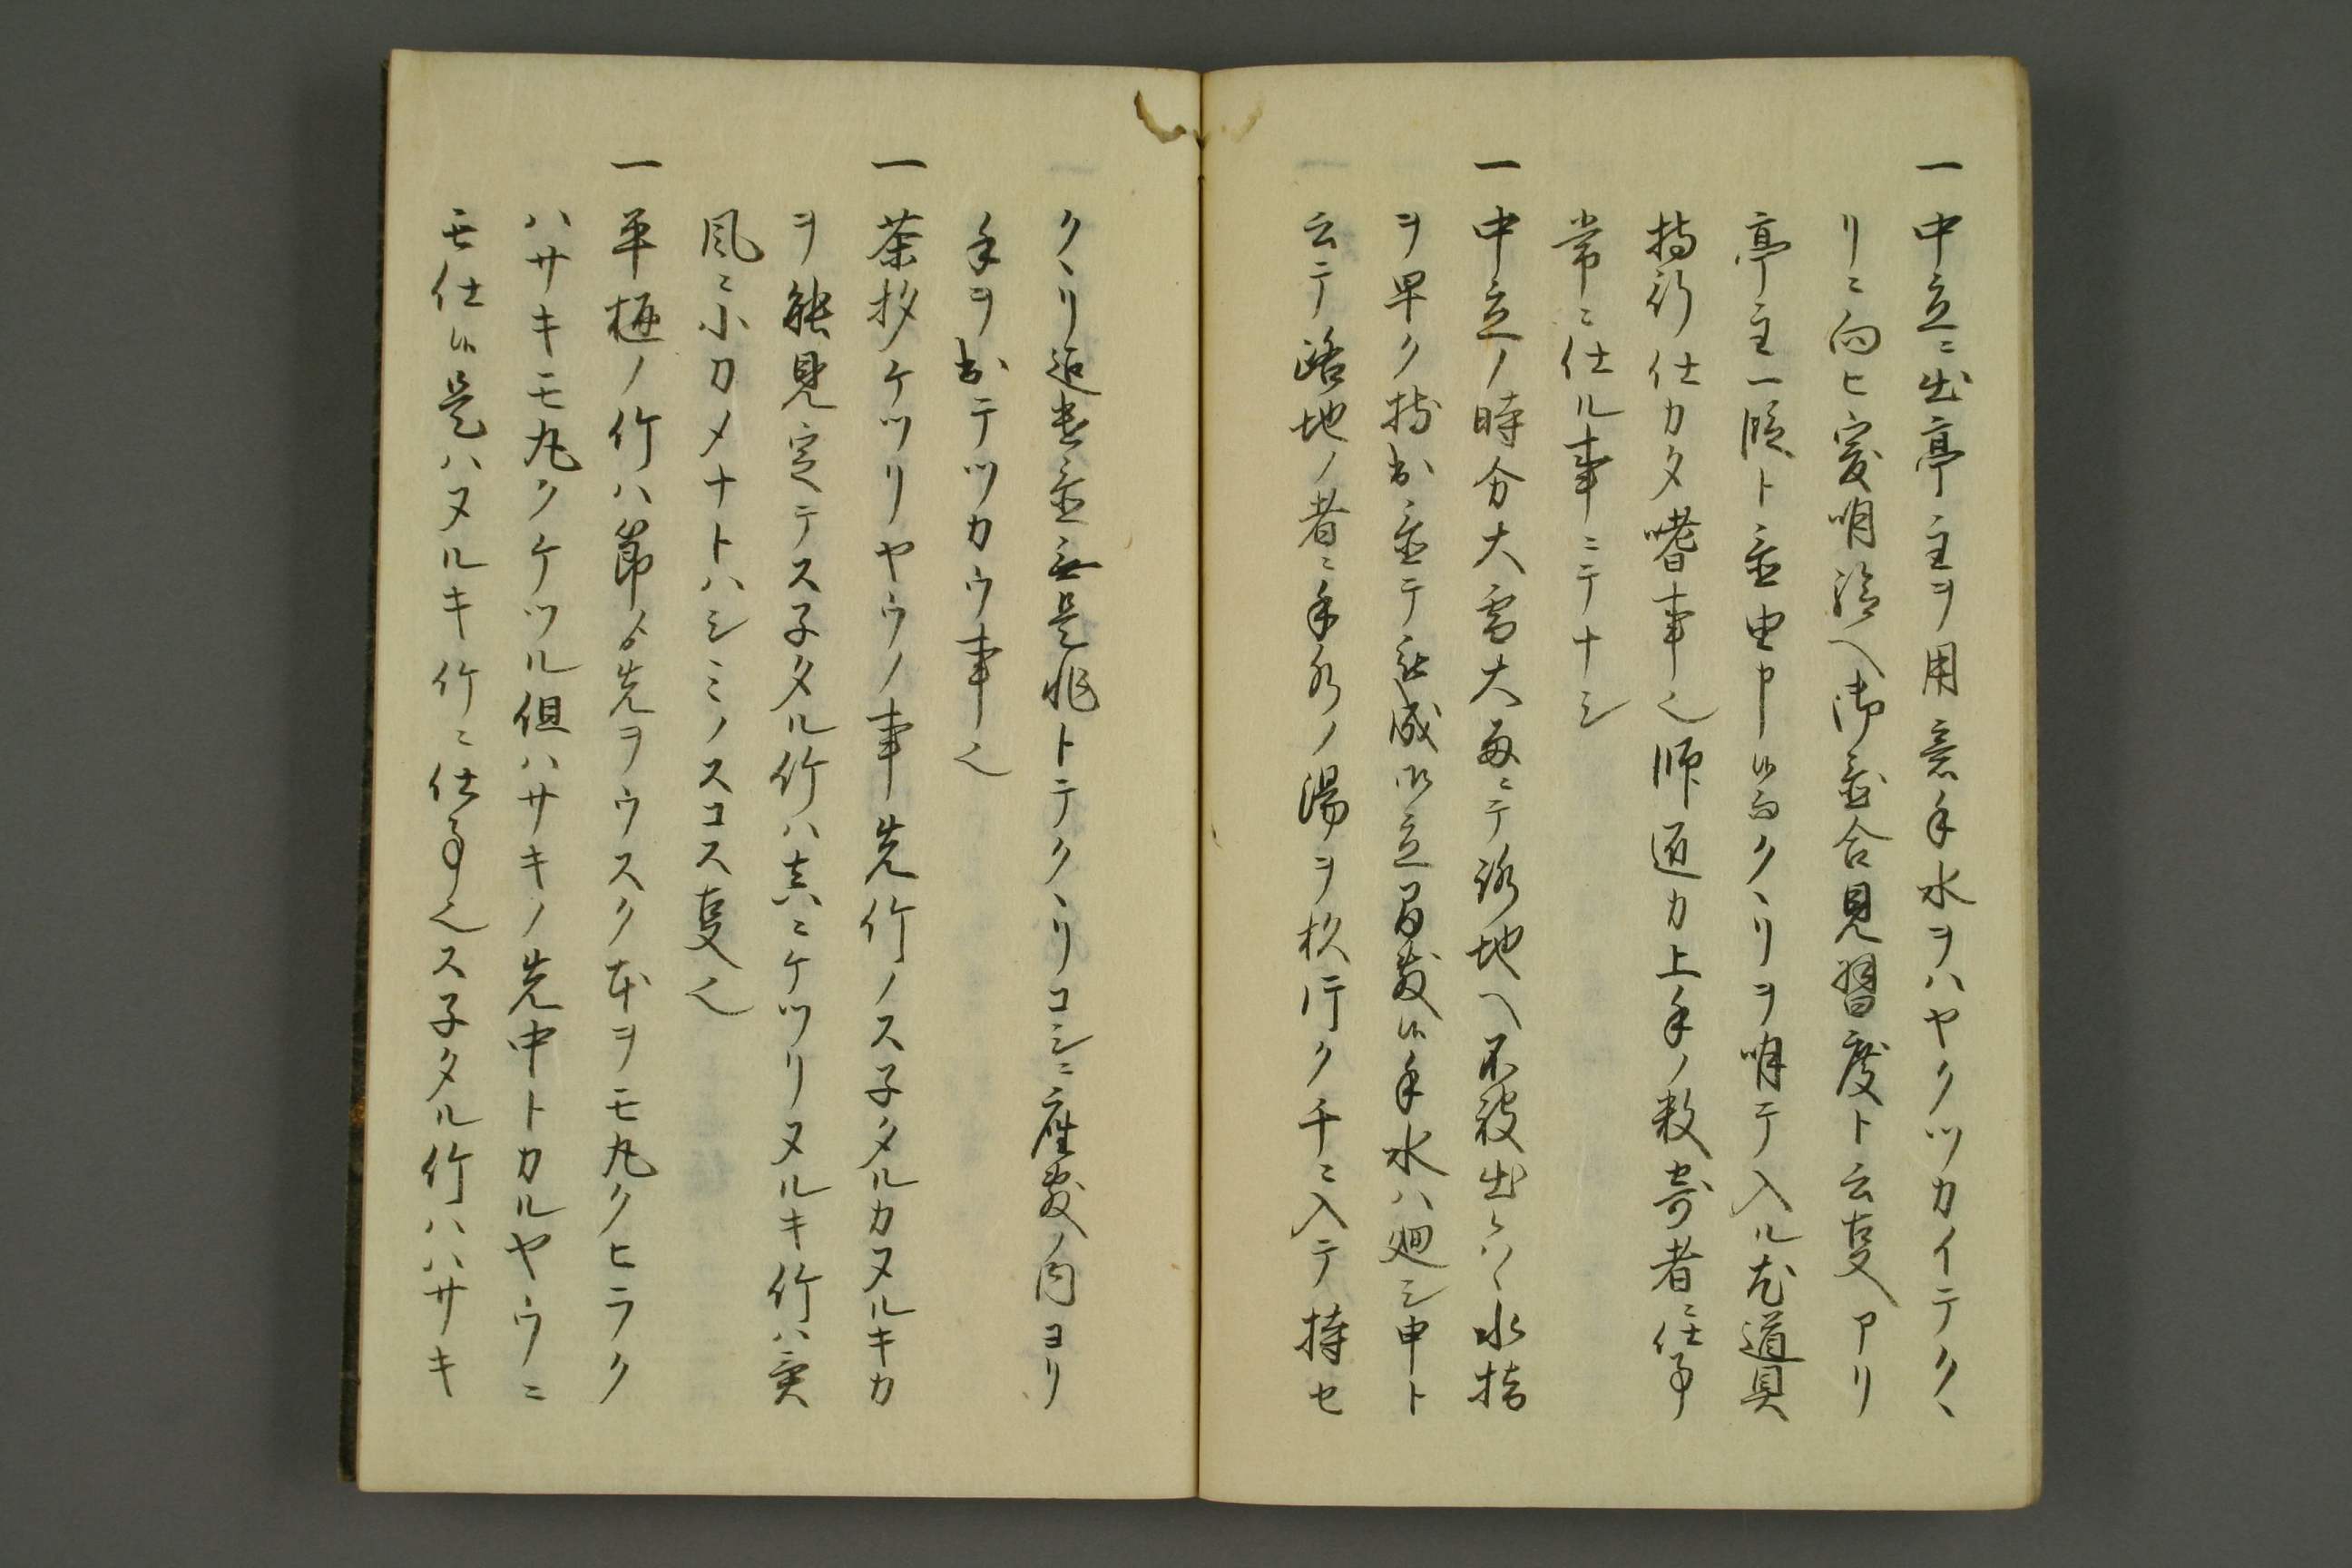 一 中立ニ出亭主ヲ用意手水ヲハヤクツカイテクヽ
リニ向ヒ戸明給ヘ御置合見習度ト云事アリ
亭主一段ト置申候ヲクヽリヲ明テ入ル尤道具
持行仕カタ嗜事也師匠カ上手ノ数寄者ニ仕事
常ニ仕ル事ニテナシ
一 中立ノ時分大雪大雨ニテ路地ヘ不被出ハヽ水指
ヲ早ク持出置テ被成御立間敷候手水ハ廻シ申ト
云テ路地ノ者ニ手水ノ湯ヲ杉行クチニ入テ持セ
クヽリ迄遣置無是非トテクヽリコシニ座敷ノ内ヨリ
手ヲ出テツカウ事也
一 茶杓ケツリヤウノ事先竹ノス子タルカヌルキカ
ヲ能見定テス子タル竹ハ真ニケツリヌルキ竹ハ異
風ニ小カメナトハシミノスコス事也
一 平極ノ竹ハ節ゟ先ヲウスク本ヲモ丸クヒラク
ハサキモ丸クケツル但ハサキノ先中トカルヤウニ
モ仕候是ハヌルキ竹ニ仕事也ス子タル竹ハハサキ